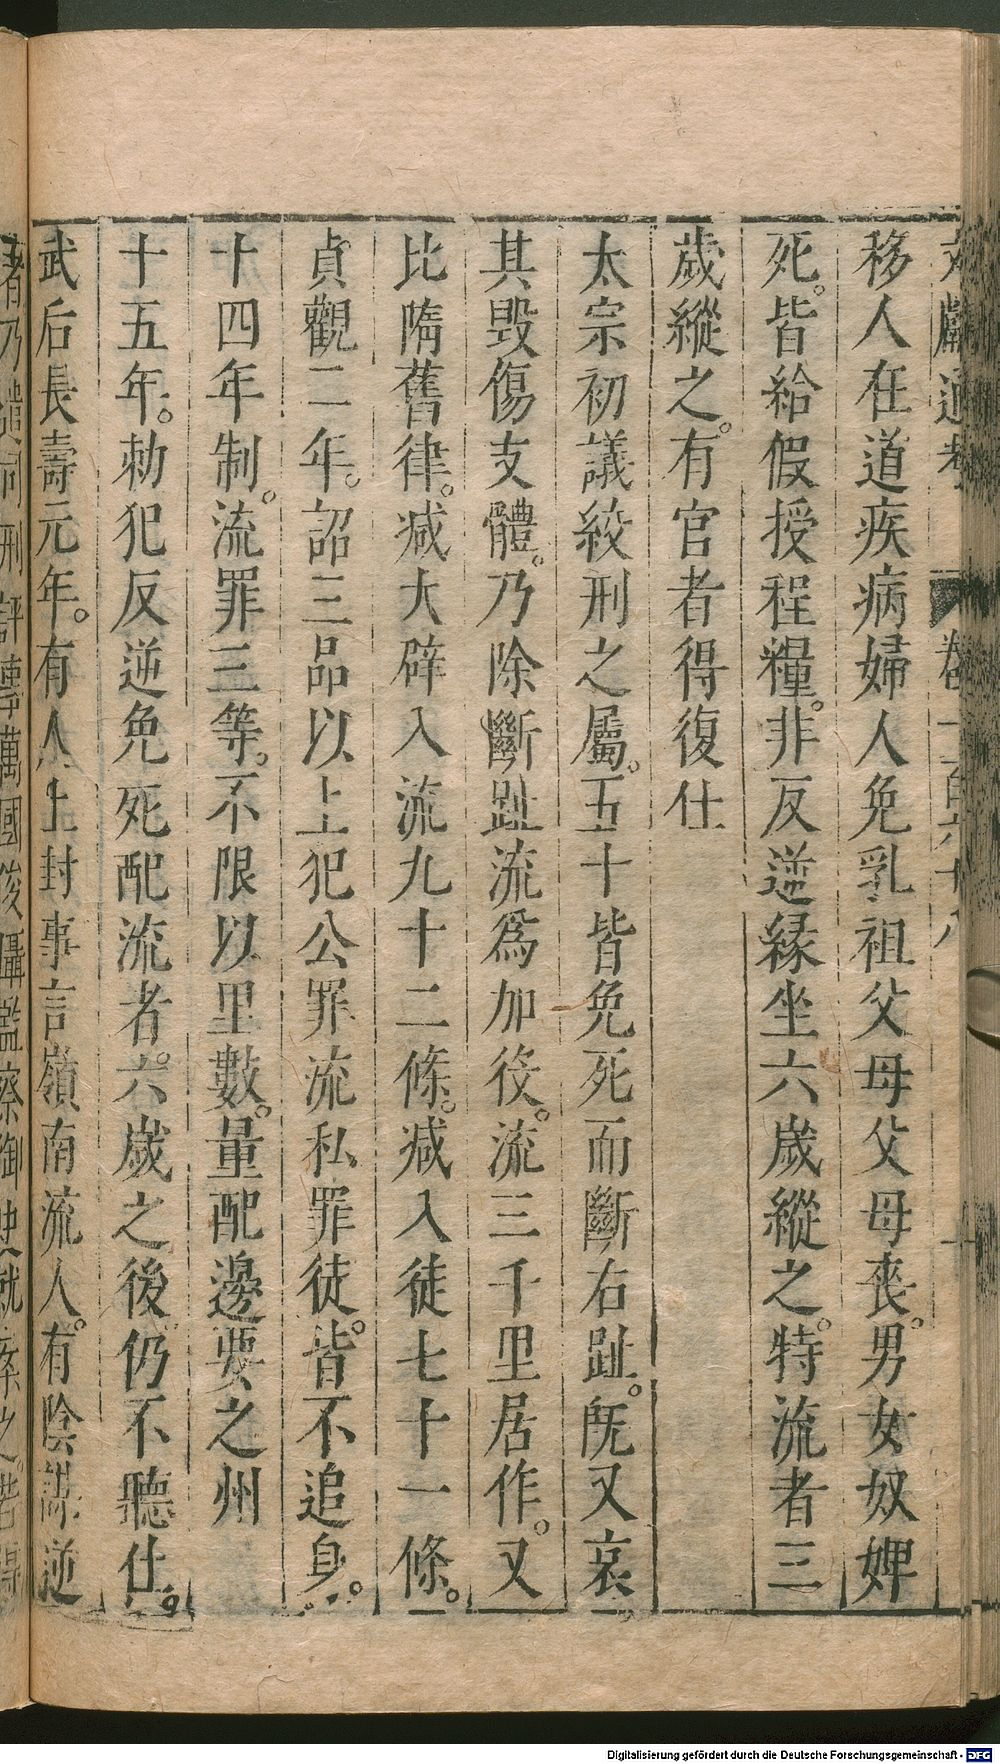 文獻通考 卷一百六十八
移人在道疾病婦人免乳祖父母父母喪。男女奴婢
死。皆給假授程糧。非反逆緣坐六歲縱之。特流者三
歲縱之。有官者得復仕
太宗初議絞刑之屬。五十皆免死而斷右趾。旣又哀
其毀傷支體。乃除斷趾流爲加役。流三千里居作。又
比隋舊律。減大辟入流九十二條。減入徒七十一條。
貞觀二年。詔三品以上犯公罪流私罪徒。皆不追身。
十四年制。流罪三等。不限以里數。量配邊要之州
十五年。勅犯反逆免死配流者。六歲之後仍不聽仕。
武后長壽元年。有人上封事言嶺南流人。有陰謀逆
者乃遣司刑評事萬國俊攝監察御史就案之若得
Digitalisierung gefördert durch die Deutsche Forschungsgemeinschaft - DFG